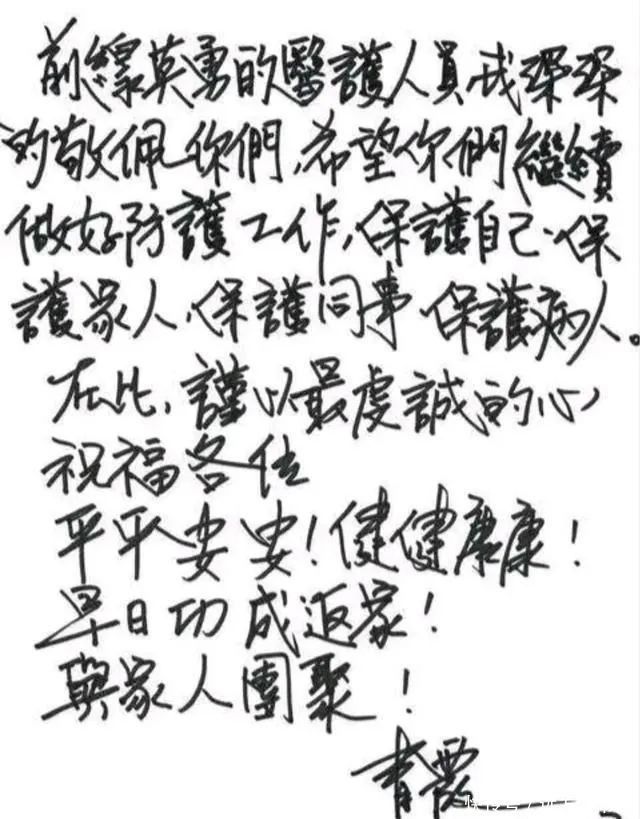 前線英勇的醫護人員我深深
的敬佩你們,希望你們繼續
做好防護工作,保護自己、保
護家人、保護同事、保護病人。
在此,謹以最虔誠的心
祝福各位
平平安安!健健康康!
早日功成返家!
與家人團聚!
青霞